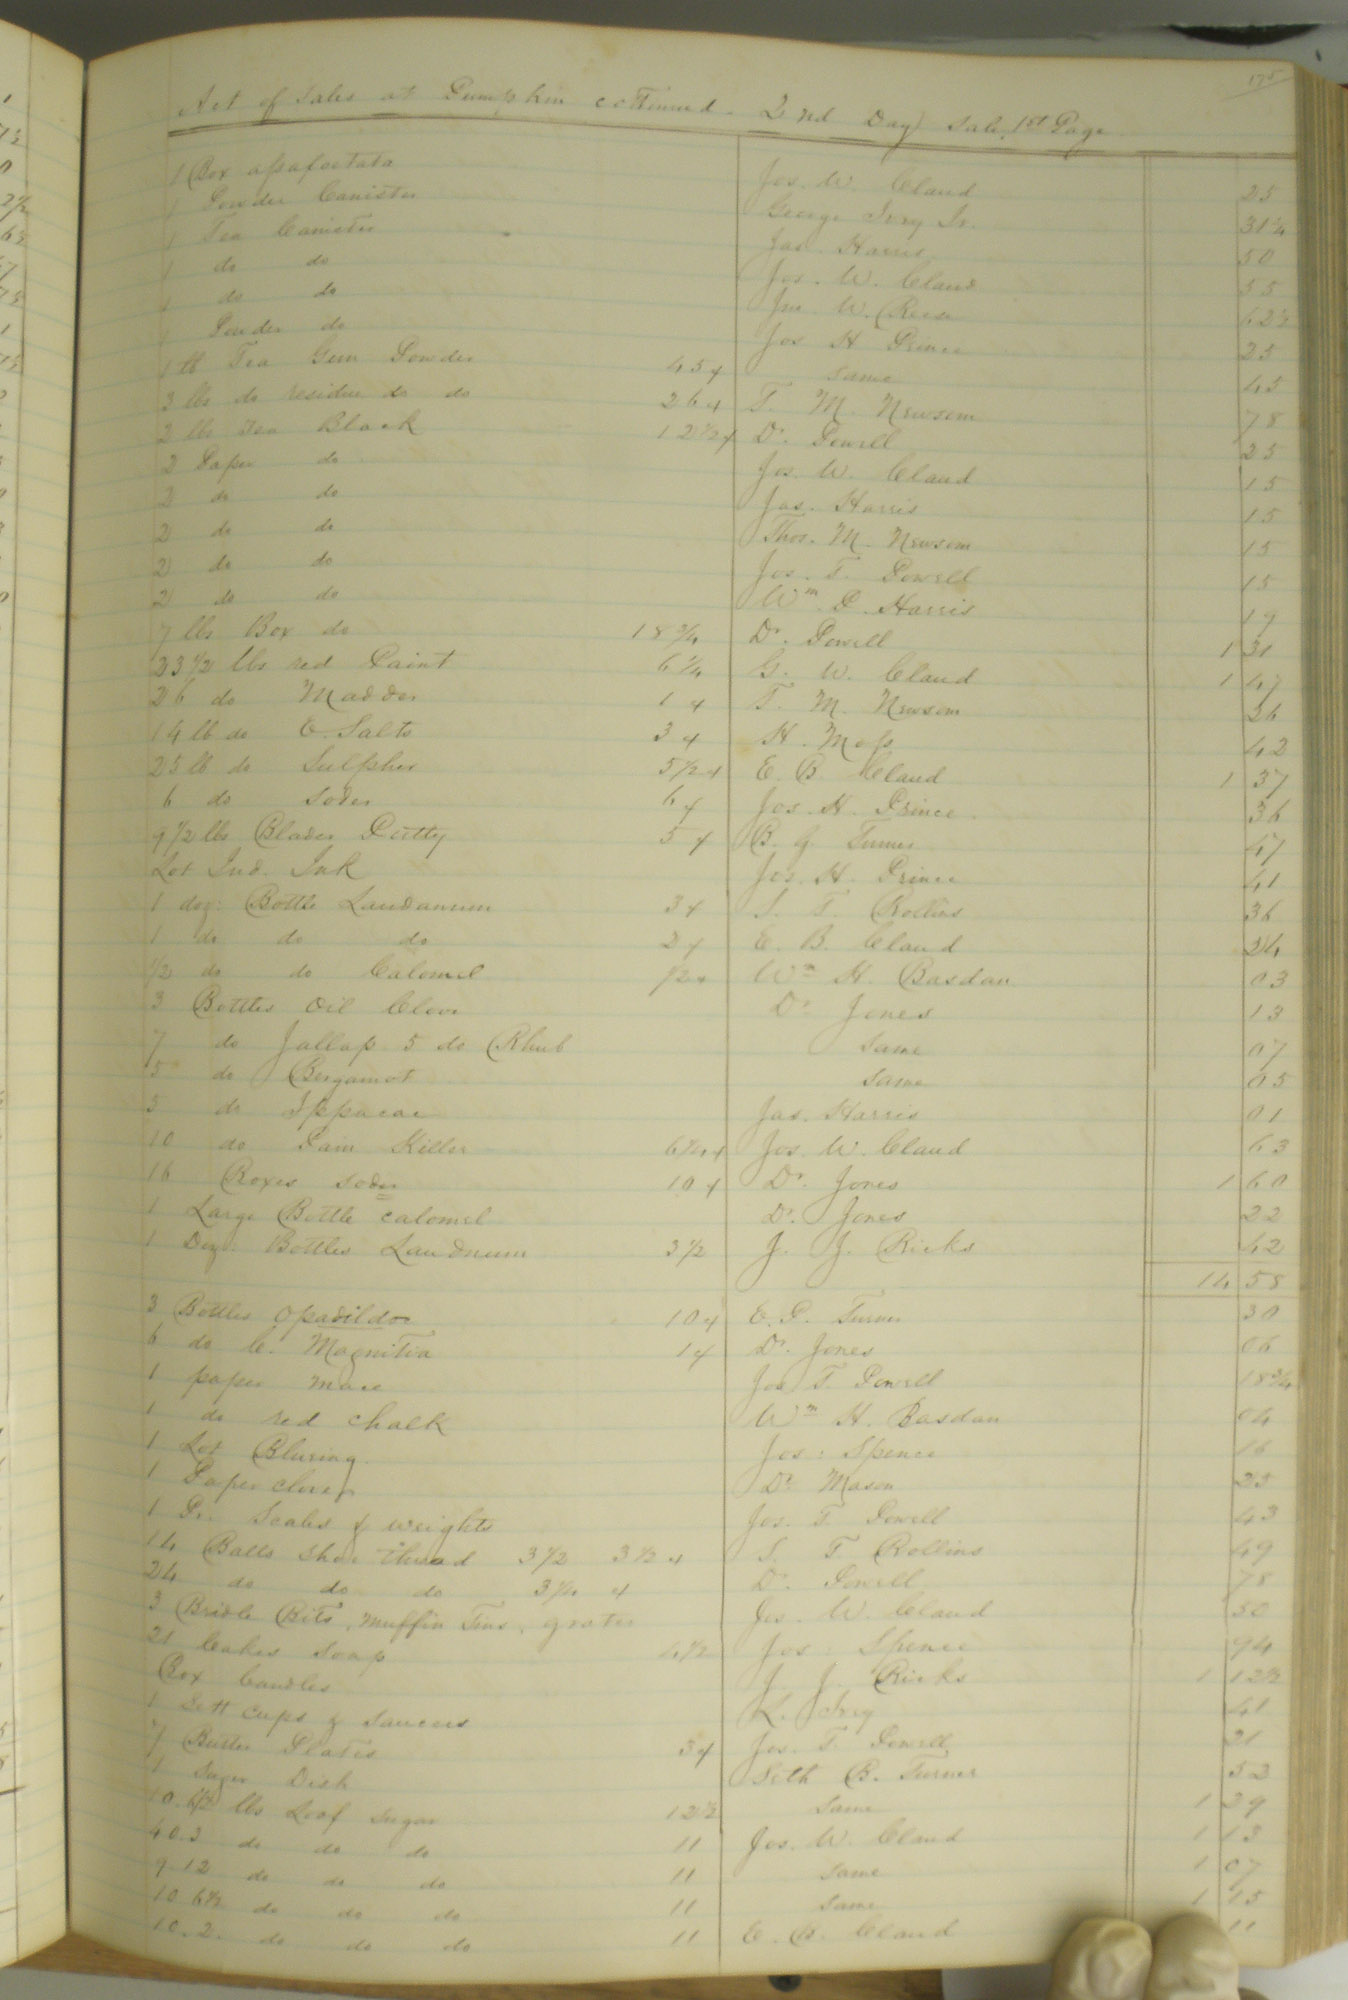 175
Act of Sales at Pumpkin cottinued. 2nd Day Sale, 1st Page
1 Box assafoetata Jos. W. Claud 25
1 Powder Canister George Ivey Sr. 31 1/4
1 Tea Canister Jas. Harris 50
1 do do Jos. W. Claud 55
1 do do Jno. W. Reese 62 1/2
1 Powder do Jos H Prince 25
1 lb Tea Gun Powder 45 ¢ same 45
3 lbs do residue do do 26 ¢ T. M. Newsom 78
2 lbs Tea Black 12 1/2 ¢ Dr. Powell 25
2 Paper do Jos. W. Claud 15
2 do do Jas. Harris 15
2 do do Thos. M. Newsom 15
2 do do Jos. T. Powell 15
2 do do Wm P. Harris 17
7 lbs Box do 18 3/4 Dr. Powell 1 31
23 1/2 lbs red Paint 6 1/4 G. W. Claud 1 47
26 do Madder 1 ¢ T. M. Newsom 26
14 lb do E. Salts 3 ¢ H. Moss 42
25 lb do Sulpher 5 1/2 ¢ E. B Claud 1 37
6 do Soder 6 ¢ Jos. H. Prince 36
9 1/2 lbs Blader Putty 5 ¢ B. G. Turner 47
Lot Ind. Ink Jos. H. Prince 41
1 doz: Bottle Laudanum 3 ¢ S. T. Rollins 36
1 do do do 2 ¢ E. B. Claud 24
1/2 do do Calomel 1/2 ¢ Wm H. Basdan 03
3 Bottles Oil Clove Dr Jones 13
7 do Jallap 5 do Rhub same 07
5 do Bergamot same 05
3 do Ippacac Jas. Harris 01
10 do Pain Killer 6 1/4 ¢ Jos. W. Claud 63
16 Boxes soder 10 ¢ Dr. Jones 1 60
1 Large Bottle calomel Dr. Jones 22
1 Doz. Bottles Laudnum 3 1/2 J. J. Ricks 42
14 58
3 Bottles Opadildoc 10 ¢ E. P. Turner 30
6 do C. Magnitia 1 ¢ Dr. Jones 06
1 paper mace Jos T. Powell 18 3/4
1 do red chalk Wm H. Basdan 04
1 Lot Bluring Jos: Spence 16
1 Paper cloves Dr Mason 25
1 Pr. Scales & weights Jos. T. Powell 43
14 Balls shoe thread 3 1/2 3 1/2 ¢ S. T Rollins 49
24 do do do 3 1/4 ¢ Dr. Powell 78
3 Bridle Bits, Muffin Tins, grater Jos. W. Claud 50
21 Cakes Soap 4 1/2 Jos: Spence 94
Box Candles J. J. Ricks 1 12 1/2
1 Sett cups & saucers L. Ivey 41
7 Butter Plates 3 ¢ Jos. T. Powell 21
1 Sugar Dish Seth B. Turner 52
10. 6 1/2 lbs Loof sugar 12 1/2 same 1 29
40.3 do do do 11 Jos. W. Claud 1 13
9 12 do do do 11 same 1 07
10 6 1/2 do do do 11 same 1 15
10.2. do do do 11 E. B. Claud 11